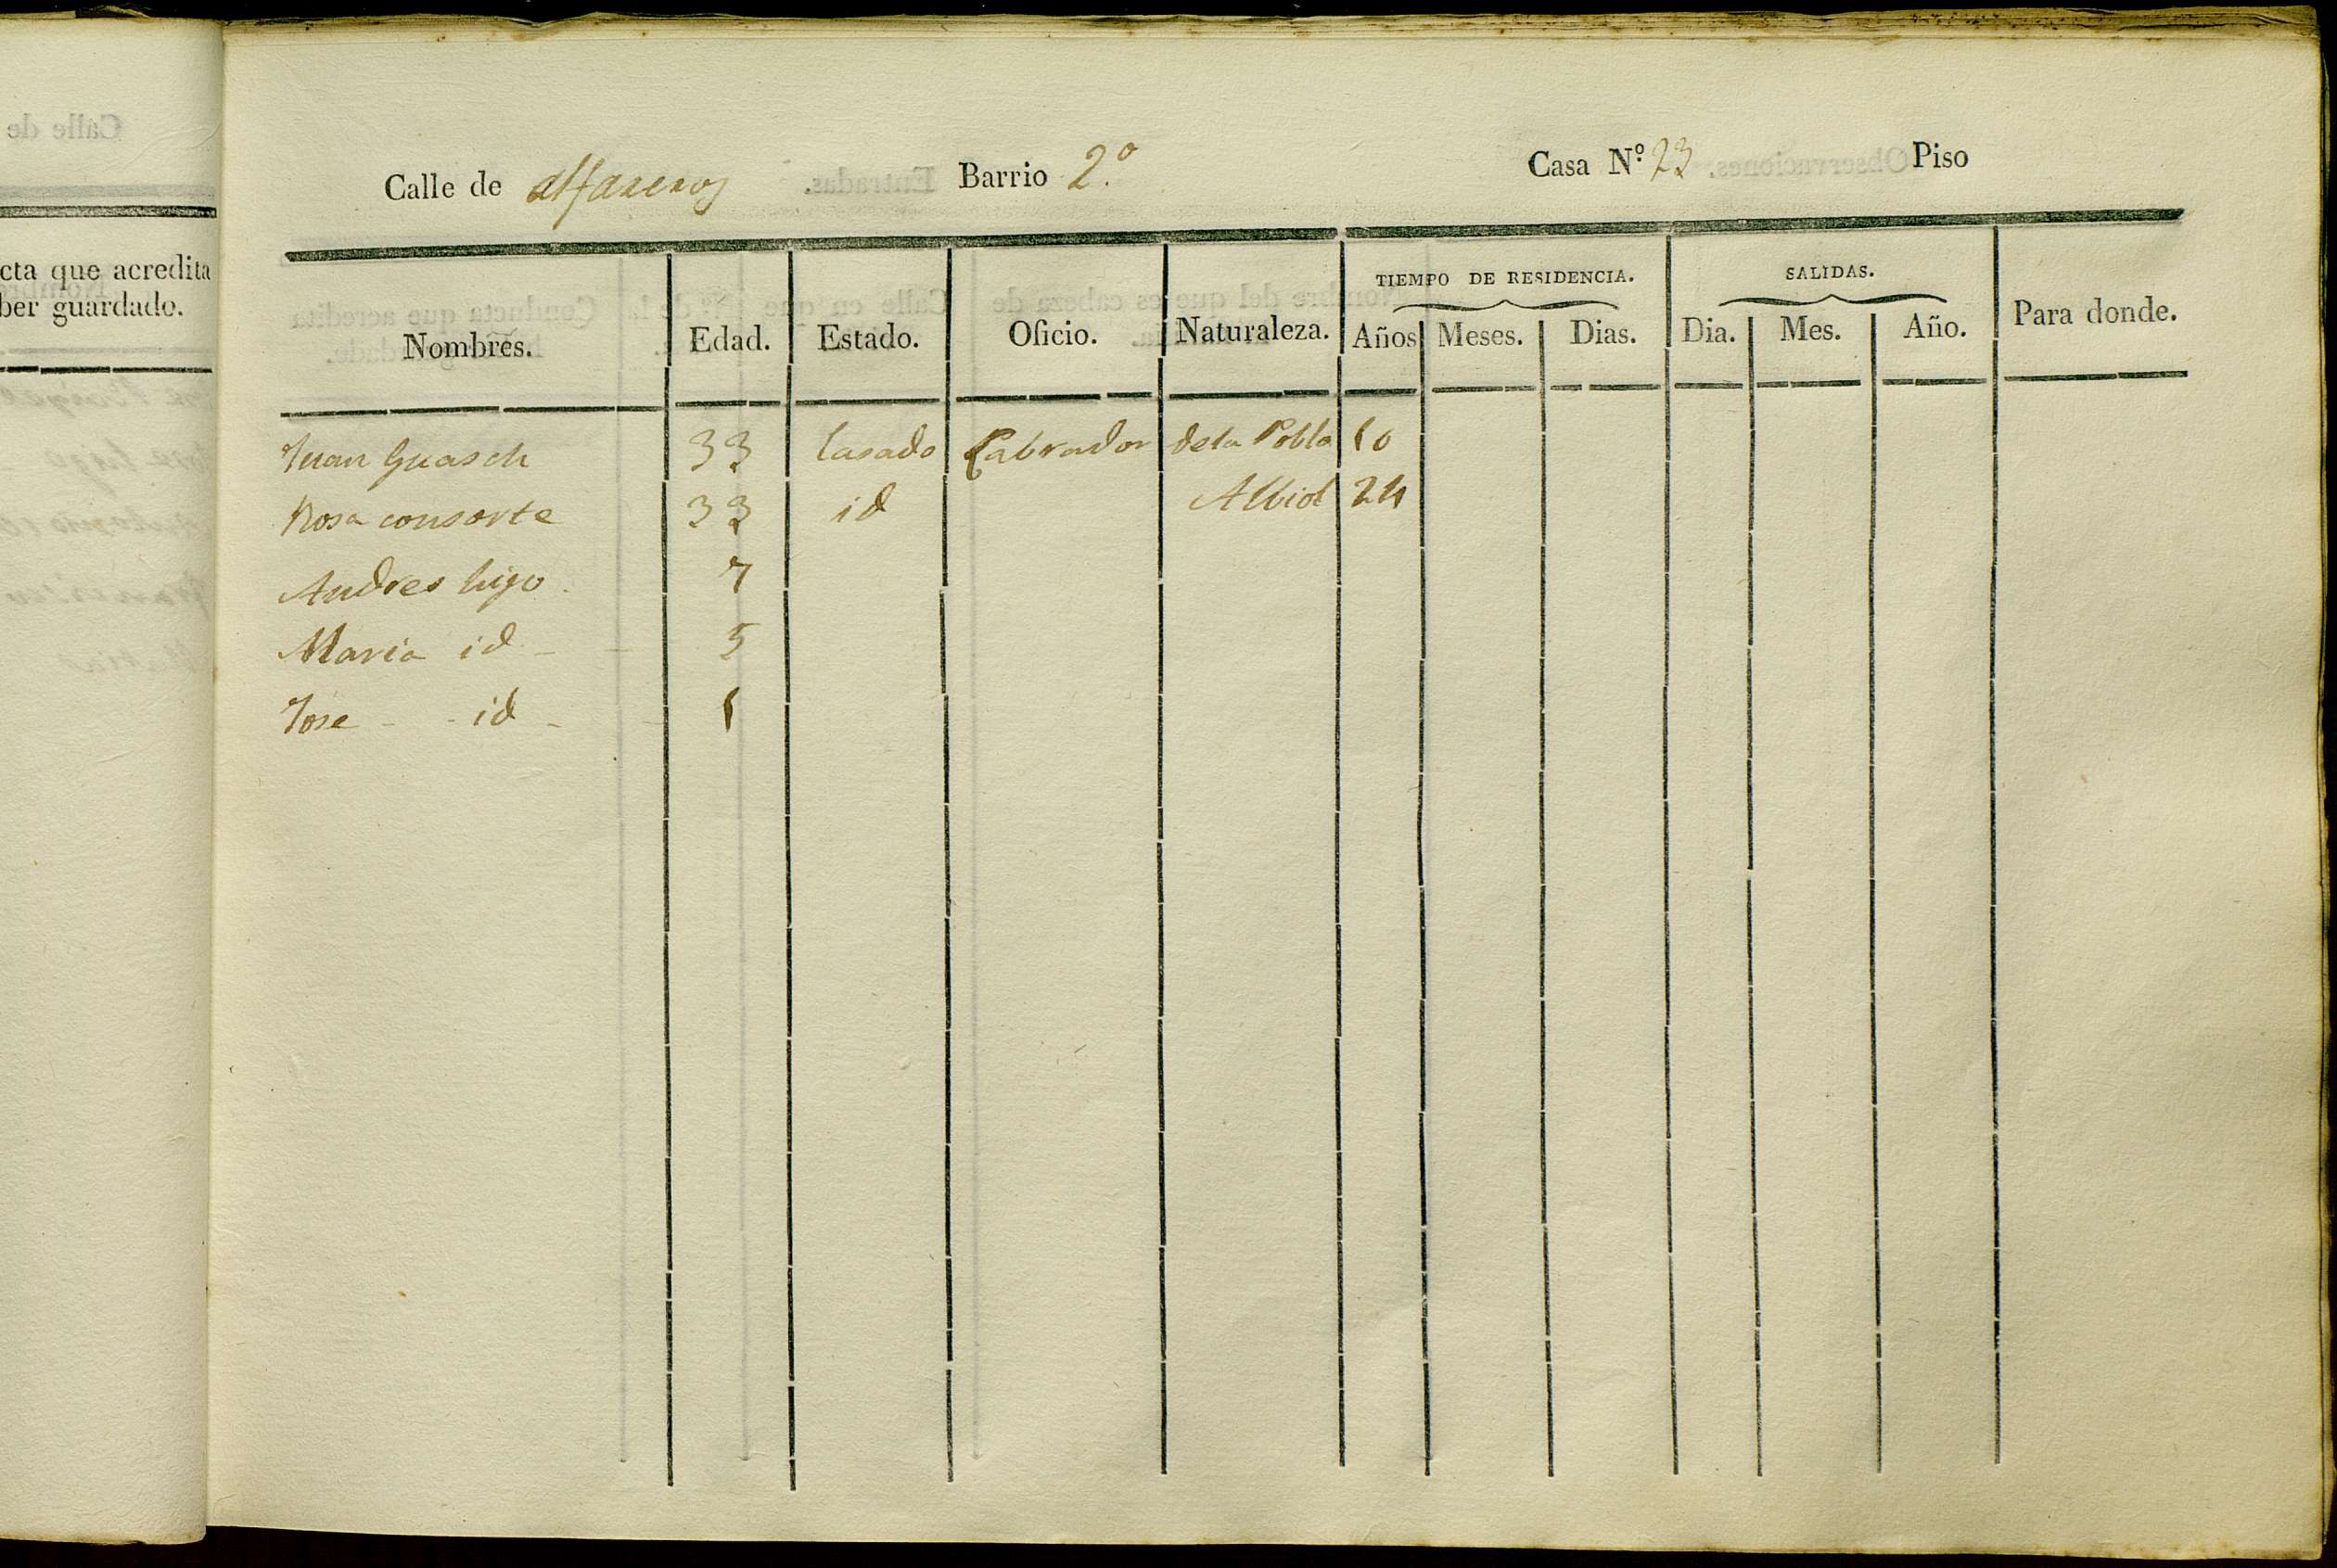 cta que acredita
ber guardado.
Calle de alfareros Barrio 2.º Casa N.º 23 Piso
Nombres. Edad. Estado. Oficio. Naturaleza. TIEMPO DE RESIDENCIA. Años Meses. Dias. SALIDAS. Dia. Mes. Año. Para donde.
Juan Guasch 33 Casado Labrador dela Pobla 10
Rosa consorte 33 id Albiol 24
Andres hijo 7
Maria id 5
Jose id 1